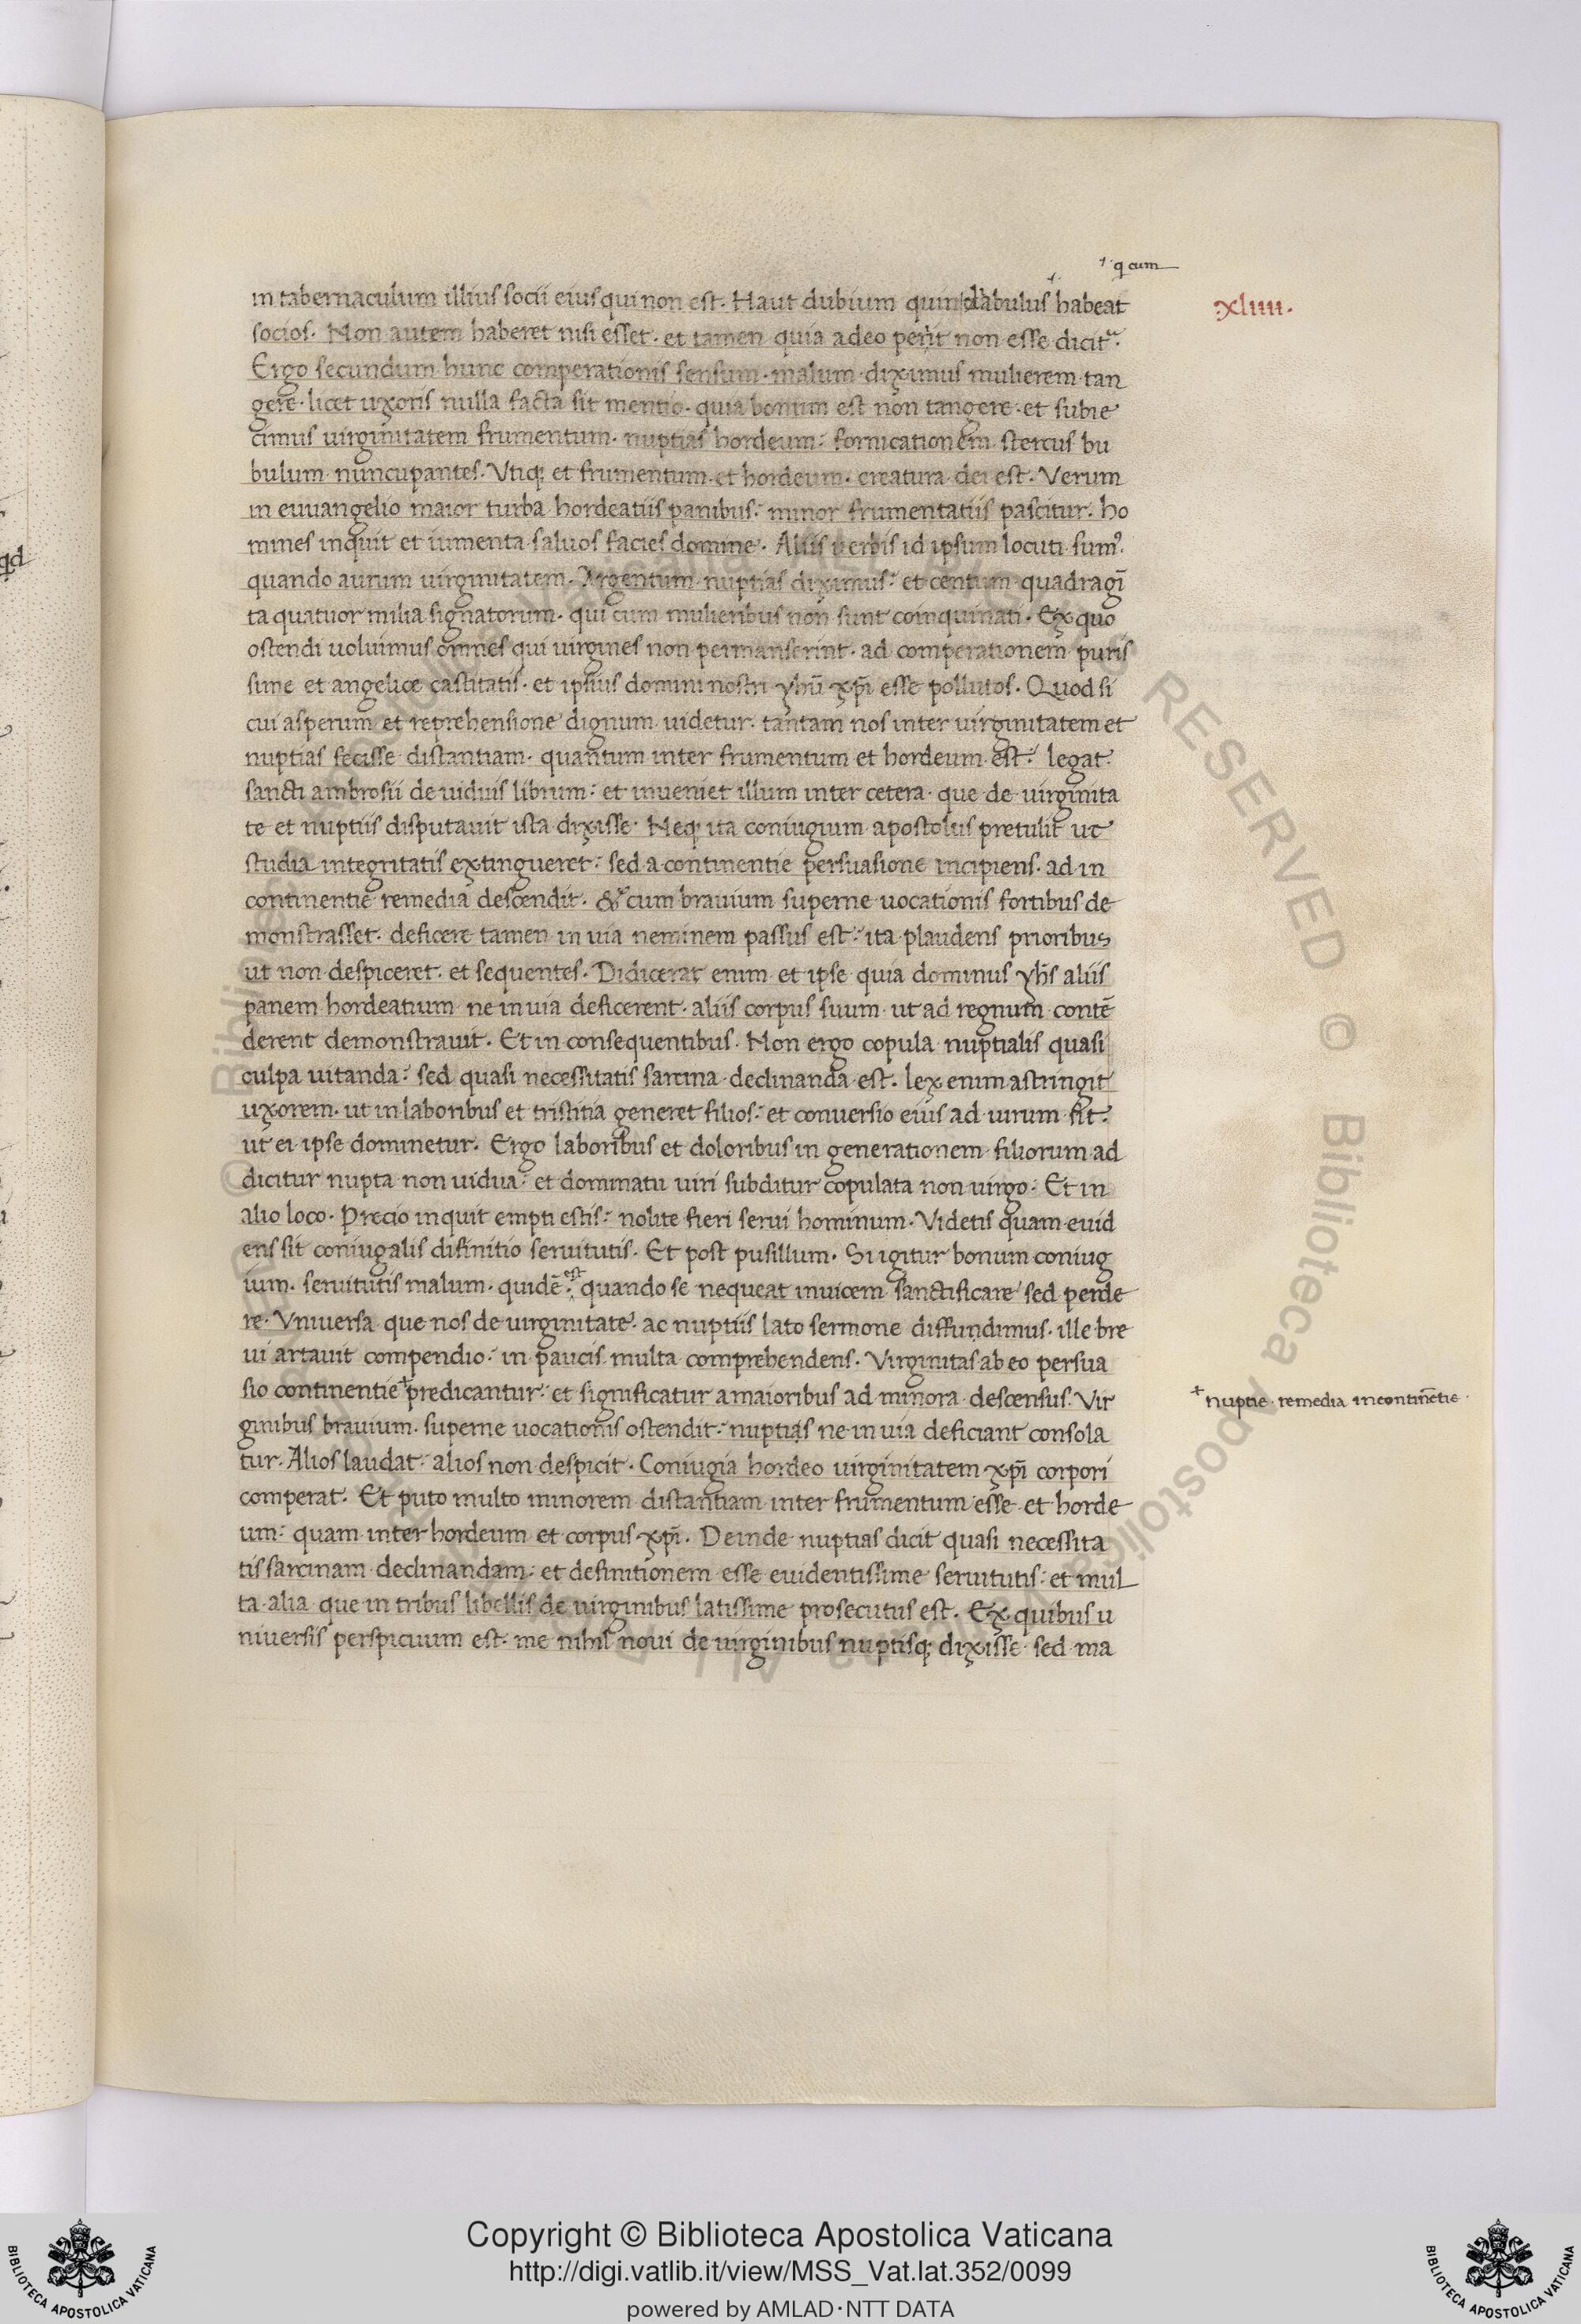 ⸱1⸱ q cum
in tabernaculum illius socii eius qui non est. Haut dubium quin diabulus habeat
xliiii.
socios. Non autem haberet nisi esset. et tamen quia adeo perit non esse dicit᷑.
Ergo secundum hunc comperationis sensum. malum diximus mulierem tan
gere. licet uxoris nulla facta sit mentio. quia bonum est non tangere. et subie
cimus uirginitatem frumentum. nuptias hordeum: fornicationem stercus bu
bulum nuncupantes. Vtiq; et frumentum et hordeum. creatura dei est. Verum
in euuangelio maior turba hordeatiis panibus: minor frumentatiis pascitur. ho
mines inquit et iumenta saluos facies domine. Aliis uerbis id ipsum locuti sumꝰ.
quando aurum uirginitatem. Argentum nuptias diximus: et centum quadragī
ta quatuor milia signatorum. qui cum mulieribus non sunt coinquinati. Ex quo
ostendi uoluimus omnes qui uirgines non permanserint. ad comperationem puris
sime et angelice castitatis. et ipsius domini nostri yhū xp̄i esse pollutos. Quod si
cui asperum et reprehensione dignum uidetur. tantam nos inter uirginitatem et
nuptias fecisse distantiam. quantum inter frumentum et hordeum est: legat
sancti ambrosii de uiduis librum: et inueniet illum inter cetera que de uirginita
te et nuptiis disputauit ista dixisse. Neq; ita coniugium apostolus pretulit ut
studia integritatis extingueret: sed a continentie persuasione incipiens. ad in
continentie remedia descendit. & cum brauium superne uocationis fortibus de
monstrasset. deficere tamen in uia neminem passus est: ita plaudens prioribus
ut non despiceret. et sequentes. Didicerat enim et ipse quia dominus yh̄s aliis
panem hordeatium ne in uia deficerent. aliis corpus suum ut ad regnum contē
derent demonstrauit. Et in consequentibus. Non ergo copula nuptialis quasi
culpa uitanda: sed quasi necessitatis sarcina declinanda est. lex enim astringit
uxorem. ut in laboribus et tristitia generet filios: et conuersio eius ad uirum sit.
ut ei ipse dominetur. Ergo laboribus et doloribus in generationem filiorum ad
dicitur nupta non uidua: et dominatu uiri subditur copulata non uirgo: Et in
alio loco. Precio inquit empti estis: nolite fieri serui hominum. Videtis quam euid
ens sit coniugalis difinitio seruitutis. Et post pusillum. Si igitur bonum coniug
ium. seruitutis malum. quidē est: quando se nequeat inuicem sanctificare sed perde
re. Vniuersa que nos de uirginitate. ac nuptiis lato sermone diffundimus. ille bre
ui artauit compendio: in paucis multa comprehendens. Virginitas ab eo persua
sio continentie + predicantur: et significatur a maioribus ad minora descensus. Vir
+ nuptie remedia incontinētie.
ginibus brauium. superne uocationis ostendit: nuptias ne in uia deficiant consola
tur. Alios laudat: alios non despicit. Coniugia hordeo uirginitatem xp̄i corpori
comperat. Et puto multo minorem distantiam inter frumentum esse et horde
um: quam inter hordeum et corpus xp̄i. Deinde nuptias dicit quasi necessita
tis sarcinam declinandam: et definitionem esse euidentissime seruitutis: et mul
ta alia que in tribus libellis de uirginibus latissime prosecutus est. Ex quibus u
niuersis perspicuum est. me nihil noui de uirginibus nuptisq; dixisse sed ma
Copyright © Biblioteca Apostolica Vaticana
http://digi.vatlib.it/view/MSS_Vat.lat.352/0099
powered by AMLAD·NTT DATA
BIBLIOTECA APOSTOLICA VATICANA
BIBLIOTECA APOSTOLICA VATICANA